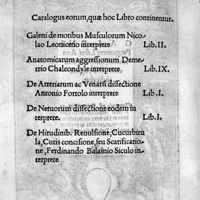 Catalogus eorum, quæ hoc Libro continentur.
Galeni de motibus Musculorum Nico-
lao Leoniceno interprete Lib. II.
Anatomicarum aggressionum Deme-
trio Chalcondyle interprete, Lib. IX.
De Arteriarum ac Venarũ dissectione
Antonio Fortolo interprete Lib. I.
De Neruorum dissectione eodem in-
terprete. Lib. I.
De Hirudinib. Reuulsione, Cucurbitu
la, Cutis concisione, seu Scarificatio-
ne, Ferdinando Balamio Siculo in-
terprete